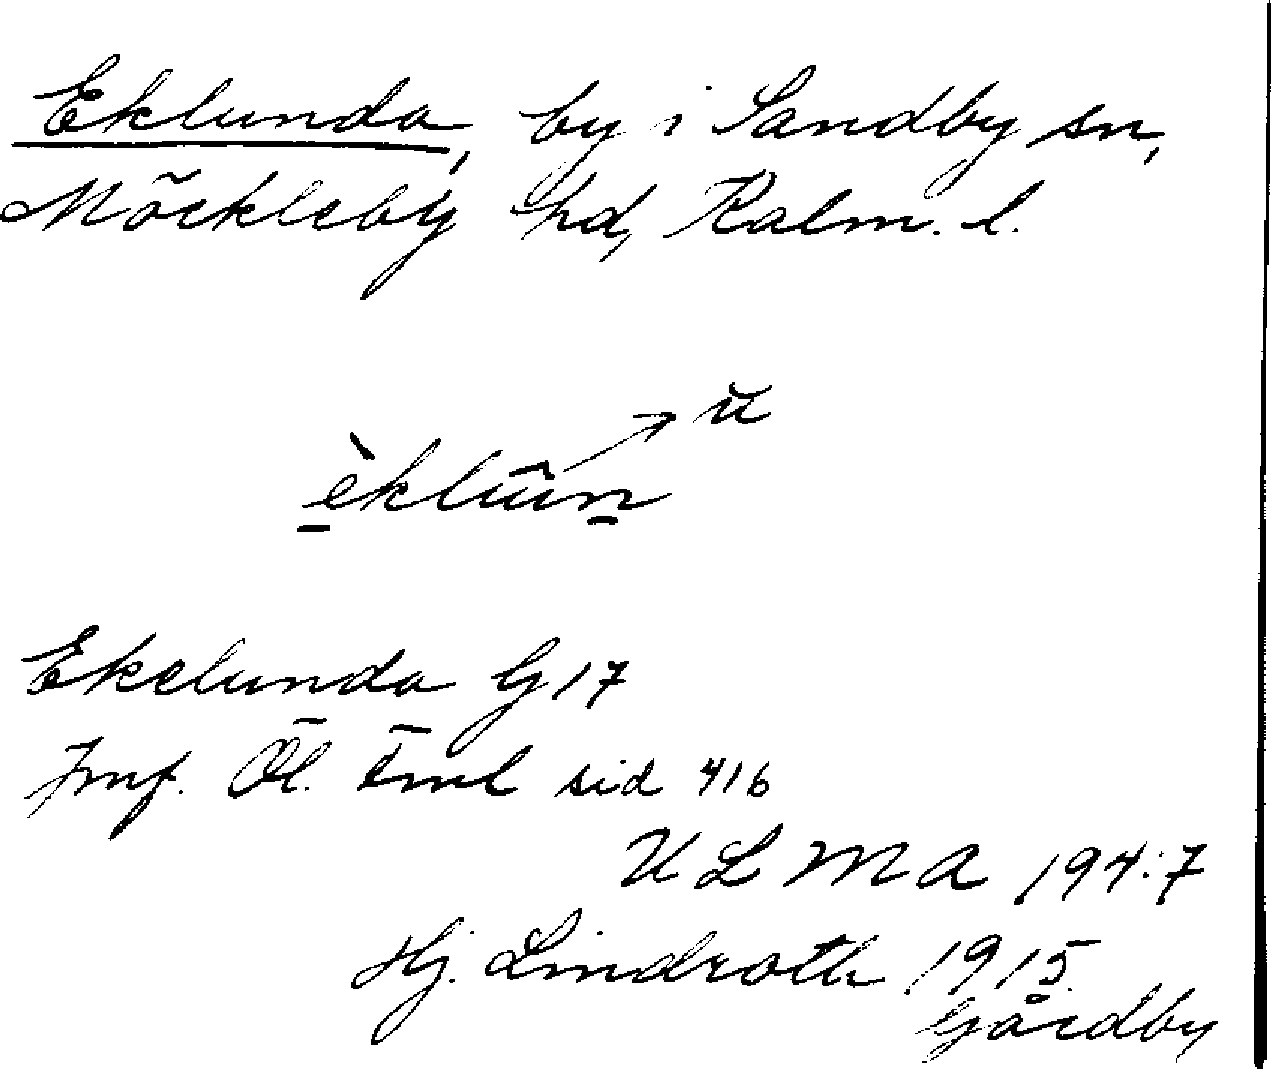 Eklunda, by i Sandby sn,
Möckleby hd, Kalm. l.
ŭ
èklûn
Ekelunda G 17
Jmf. Öl. Eml sid 416
ULMA 194:7
Hj. Lindroth 1915
Gårdby